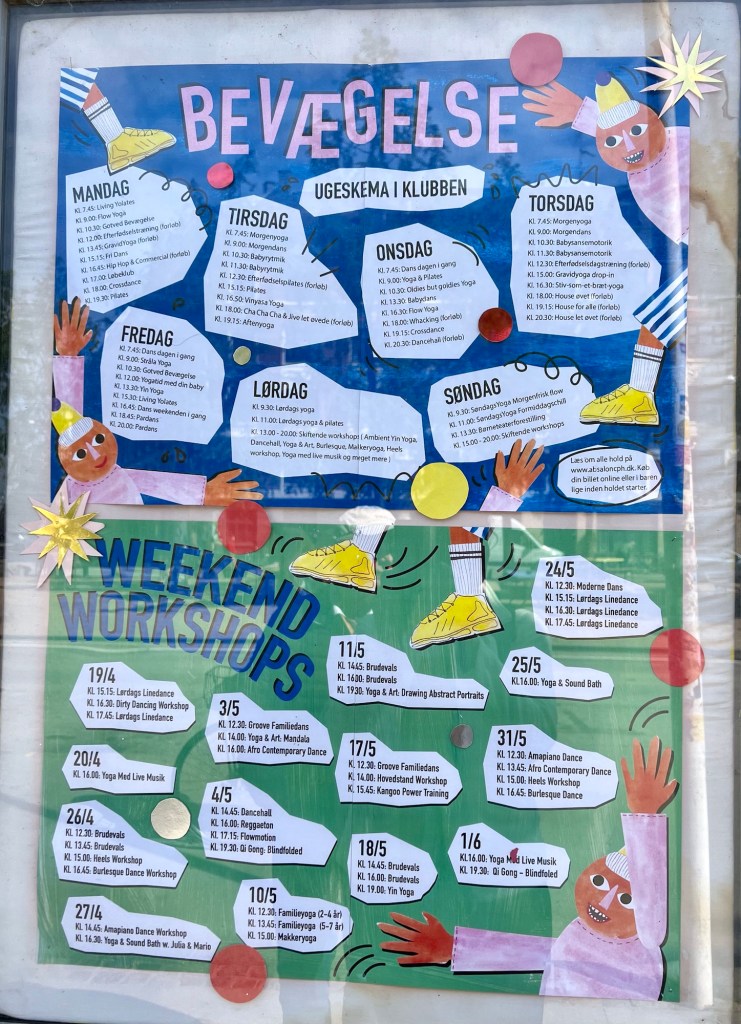 BEVÆGELSE
UGESKEMA I KLUBBEN
MANDAG
Kl. 7.45: Living Yolates
Kl. 9.00: Flow Yoga
Kl. 10.30: Gotved Bevægelse
Kl. 12.00: Efterfødselstræning (forløb)
Kl. 13.45: GravidYoga (forløb)
Kl. 15.15: Fri Dans
Kl. 16.45: Hip Hop & Commercial (forløb)
Kl. 17.00: Løbeklub
Kl. 18.00: Crossdance
Kl. 19.30: Pilates
TIRSDAG
Kl. 7.45: Morgenyoga
Kl. 9.00: Morgendans
Kl. 10.30: Babyrytmik
Kl. 11.30: Babyrytmik
Kl. 12.30: Efterfødselspilates (forløb)
Kl. 15.15: Pilates
Kl. 16.50: Vinyasa Yoga
Kl. 18.00: Cha Cha Cha & Jive let øvede (forløb)
Kl. 19.15: Aftenyoga
ONSDAG
Kl. 7.45: Dans dagen i gang
Kl. 9.00: Yoga & Pilates
Kl. 10.30: Oldies but goldies Yoga
Kl. 13.30: Babydans
Kl. 16.30: Flow Yoga
Kl. 18.00: Whacking (forløb)
Kl. 19.15: Crossdance
Kl. 20.30: Dancehall (forløb)
TORSDAG
Kl. 7.45: Morgenyoga
Kl. 9.00: Morgendans
Kl. 10.30: Babysansemotorik
Kl. 11.30: Babysansemotorik
Kl. 12.30: Efterfødselsdagstræning (forløb)
Kl. 15.00: Gravidyoga drop-in
Kl. 16.30: Stiv-som-et-bræt-yoga
Kl. 18.00: House øvet (forløb)
Kl. 19.15: House for alle (forløb)
Kl. 20.30: House let øvet (forløb)
FREDAG
Kl. 7.45: Dans dagen i gang
Kl. 9.00: Stråla Yoga
Kl. 10.30: Gotved Bevægelse
Kl. 12.00: Yogatid med din baby
Kl. 13.30: Yin Yoga
Kl. 15.30: Living Yolates
Kl. 16.45: Dans weekenden i gang
Kl. 18.45: Pardans
Kl. 20.00: Pardans
LØRDAG
Kl. 9.30: Lørdags yoga
Kl. 11.00: Lørdags yoga & pilates
Kl. 13.00 - 20.00: Skiftende workshop ( Ambient Yin Yoga,
Dancehall, Yoga & Art, Burlesque, Makkeryoga, Heels
workshop, Yoga med live musik og meget mere )
SØNDAG
Kl. 9.30: SøndagsYoga Morgenfrisk flow
Kl. 11.00: SøndagsYoga Formiddagschill
Kl. 13.30: Børneteaterforestilling
Kl. 15.00 - 20.00: Skiftende workshops
Læs om alle hold på
www.absaloncph.dk. Køb
din billet online eller i baren
lige inden holdet starter.
WEEKEND
WORKSHOPS
19/4
KL. 15.15: Lørdags Linedance
KL. 16.30: Dirty Dancing Workshop
KL. 17.45: Lørdags Linedance
20/4
KL. 16.00: Yoga Med Live Musik
26/4
KL. 12.30: Brudevals
KL. 13.45: Brudevals
KL. 15.00: Heels Workshop
KL. 16.45: Burlesque Dance Workshop
27/4
KL. 14.45: Amapiano Dance Workshop
KL. 16.30: Yoga & Sound Bath w. Julia & Mario
3/5
KL. 12.30: Groove Familiedans
KL. 14.00: Yoga & Art: Mandala
KL. 16.00: Afro Contemporary Dance
4/5
KL. 14.45: Dancehall
KL. 16.00: Reggaeton
KL. 17.15: Flowmotion
KL. 19.30: Qi Gong: Blindfolded
10/5
KL. 12.30: Familieyoga (2-4 år)
KL. 13.45: Familieyoga (5-7 år)
KL. 15.00: Makkeryoga
11/5
KL. 14.45: Brudevals
KL. 1600: Brudevals
KL. 19.30: Yoga & Art: Drawing Abstract Portraits
17/5
KL. 12.30: Groove Familiedans
KL. 14.00: Hovedstand Workshop
KL. 15.45: Kangoo Power Training
18/5
KL. 14.45: Brudevals
KL. 16.00: Brudevals
KL. 19.00: Yin Yoga
24/5
KL. 12.30: Moderne Dans
KL. 15.15: Lørdags Linedance
KL. 16.30: Lørdags Linedance
KL. 17.45: Lørdags Linedance
25/5
KL. 16.00: Yoga & Sound Bath
31/5
KL. 12.30: Amapiano Dance
KL. 13.45: Afro Contemporary Dance
KL. 15.00: Heels Workshop
KL. 16.45: Burlesque Dance
1/6
KL.16.00: Yoga Med Live Musik
KL. 19.30: Qi Gong - Blindfoled